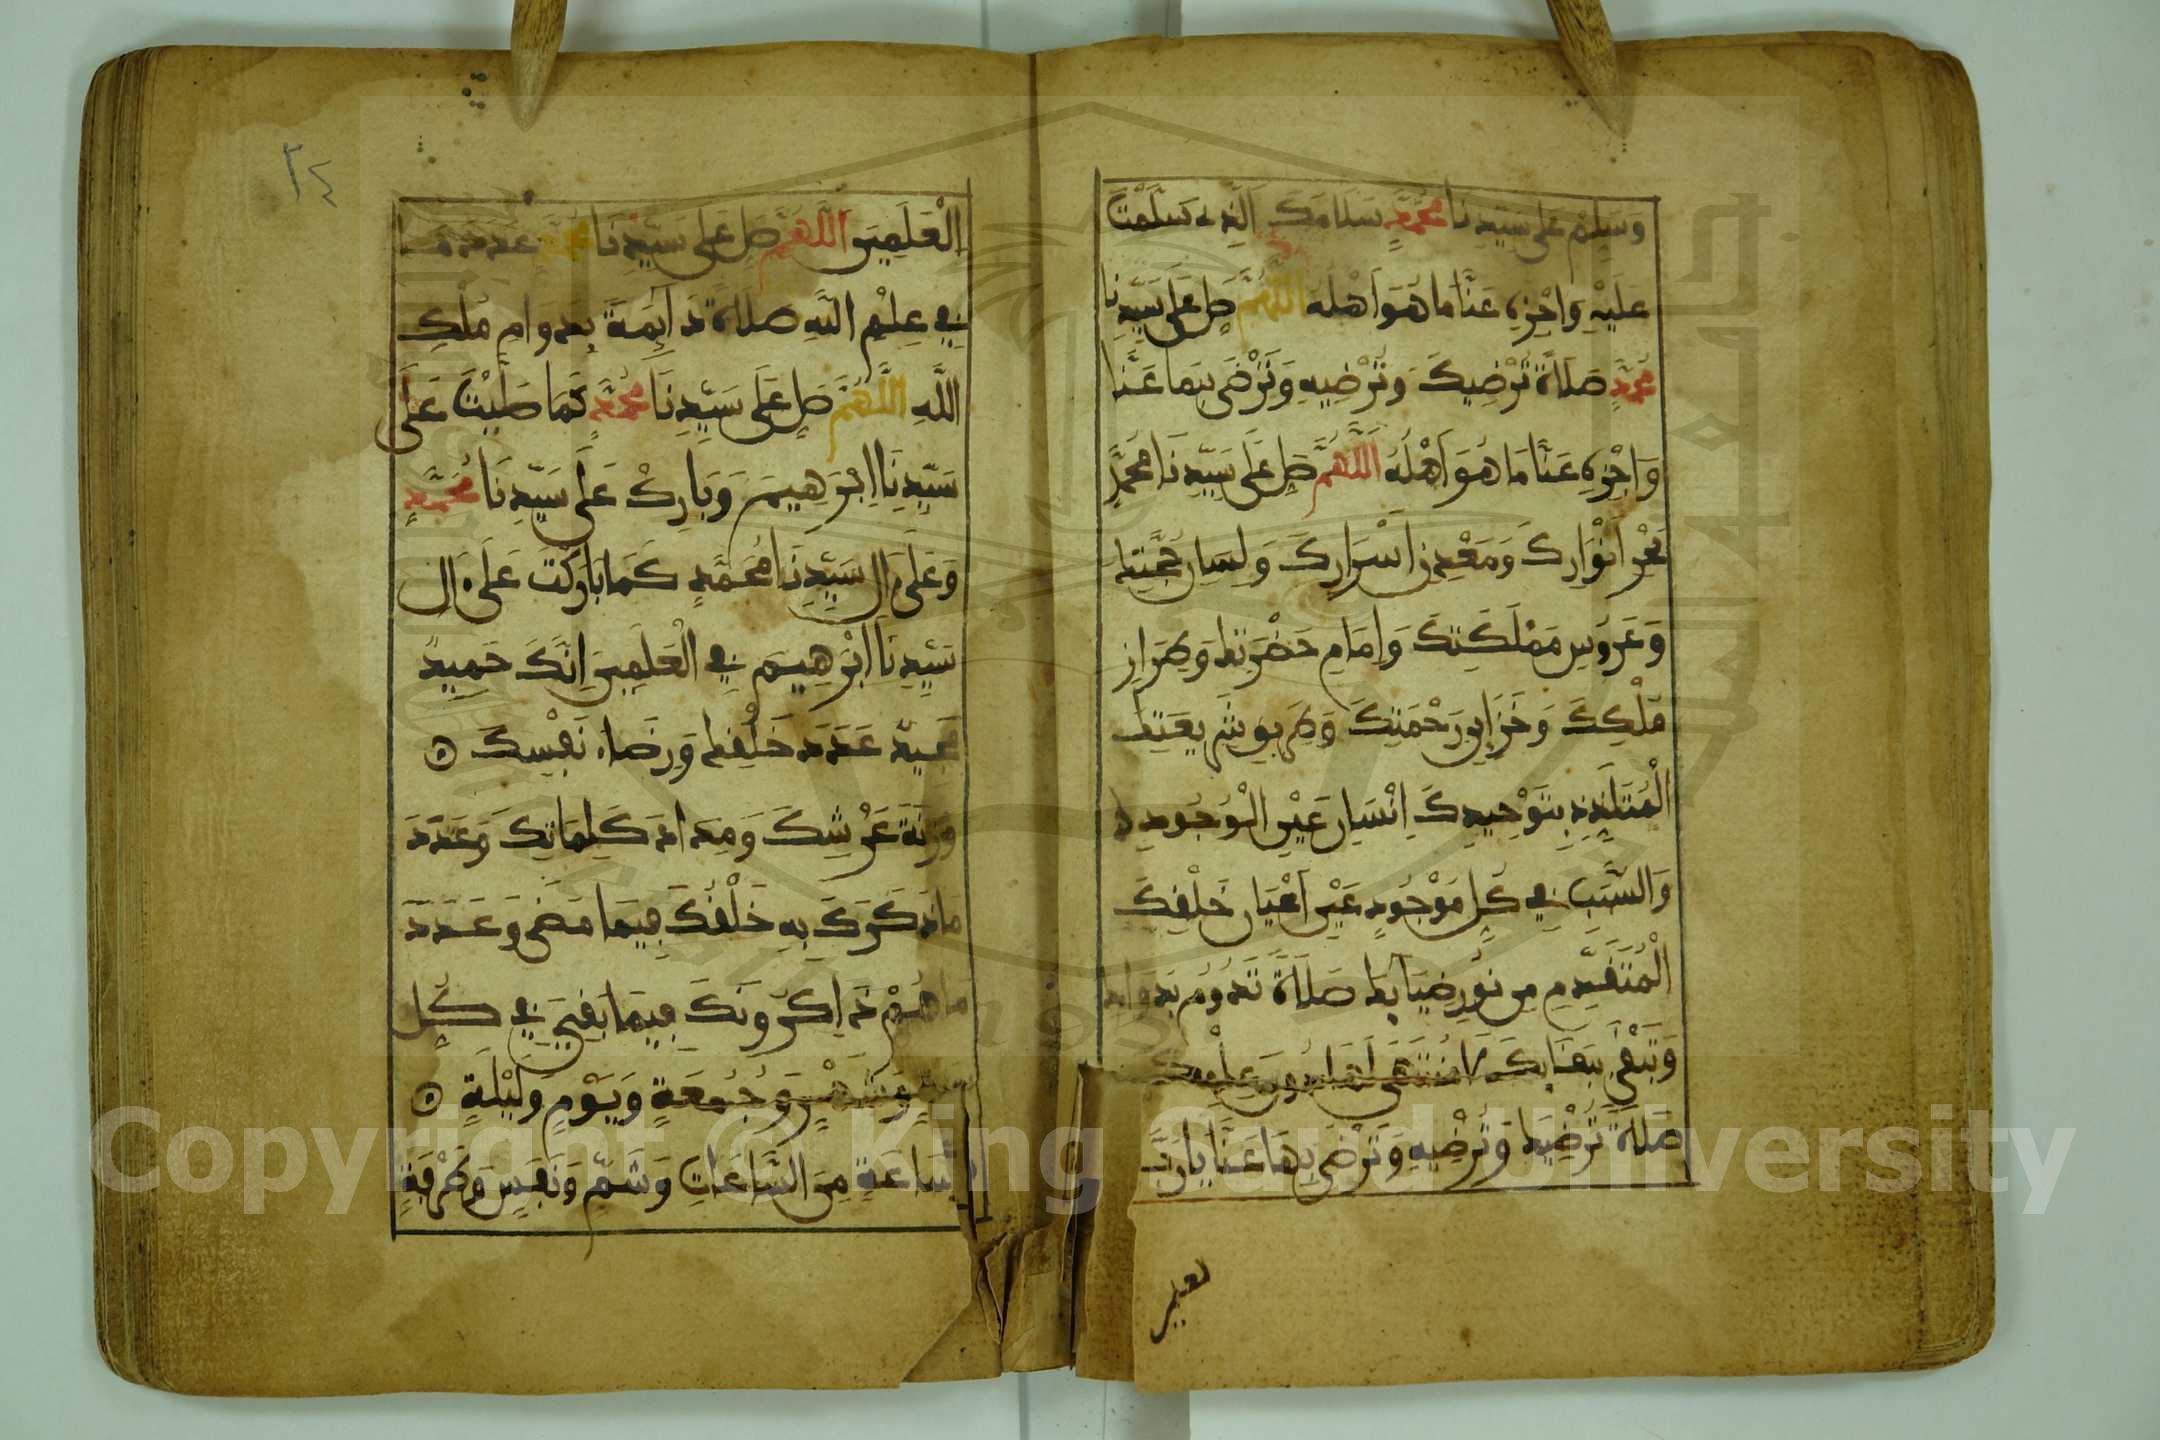 وَسَلِّمْ عَلَى سَيِّدِنَا مُحَمَّدٍ سَلَامَكَ الَّذِي سَلَّمْتَ
عَلَيْهِ وَاجْزِهِ عَنَّا مَا هُوَ أَهْلُهُ اللَّهُمَّ صَلِّ عَلَى سَيِّدِنَا
مُحَمَّدٍ صَلَاةً تُرْضِيكَ وَتُرْضِيهِ وَتَرْضَى بِهَا عَنَّا
وَاجْزِهِ عَنَّا مَا هُوَ أَهْلُهُ اللَّهُمَّ صَلِّ عَلَى سَيِّدِنَا مُحَمَّدٍ
بَحْرِ أَنْوَارِكَ وَمَعْدِنِ أَسْرَارِكَ وَلِسَانِ حُجَّتِكَ
وَعَرُوسِ مَمْلَكَتِكَ وَإِمَامِ حَضْرَتِكَ وَطِرَازِ
مُلْكِكَ وَخَزَائِنِ رَحْمَتِكَ وَطَرِيقِ شَرِيعَتِكَ
الْمُتَلَذِّذِ بِتَوْحِيدِكَ إِنْسَانِ عَيْنِ الْوُجُودِ
وَالسَّبَبِ فِي كُلِّ مَوْجُودٍ عَيْنِ أَعْيَانِ خَلْقِكَ
الْمُتَقَدِّمِ مِن نُورِ ضِيَائِكَ صَلَاةً تَدُومُ بِدَوَامِكَ
وَتَبْقَى بِبَقَائِكَ لَا مُنْتَهَى لَهَا دُونَ عِلْمِكَ
صَلَاةً تُرْضِيكَ وَتُرْضِيهِ وَتَرْضَى بِهَا عَنَّا يَا رَبَّ
لعلمين
٢٤
الْعَلَمِينَ اللَّهُمَّ صَلِّ عَلَى سَيِّدِنَا مُحَمَّدٍ عَدَدَ مَا
فِي عِلْمِ اللَّهِ صَلَاةً دَائِمَةً بِدَوَامِ مُلْكِ
اللَّهِ اللَّهُمَّ صَلِّ عَلَى سَيِّدِنَا مُحَمَّدٍ كَمَا صَلَّيْتَ عَلَى
سَيِّدِنَا إِبْرَهِيمَ وَبَارِكْ عَلَى سَيِّدِنَا مُحَمَّدٍ
وَعَلَى ءَالِ سَيِّدِنَا مُحَمَّدٍ كَمَا بَارَكْتَ عَلَى ءَالِ
سَيِّدِنَا إِبْرَهِيمَ فِي الْعَلَمِينَ إِنَّكَ حَمِيدٌ
مَجِيدٌ عَدَدَ خَلْقِكَ وَرِضَاءَ نَفْسِكَ
وَزِنَةَ عَرْشِكَ وَمِدَادَ كَلِمَاتِكَ وَعَدَدَ
مَا ذَكَرَكَ بِهِ خَلْقُكَ فِيمَا مَضَى وَعَدَدَ
مَا هُمْ ذَاكِرُونَكَ فِيمَا بَقِيَ فِي كُلِّ
سَنَةٍ وَشَهْرٍ وَجُمُعَةٍ وَيَوْمٍ وَلَيْلَةٍ
وَسَاعَةٍ مِنَ السَّاعَاتِ وَشَمٍّ وَنَفَسٍ وَطَرْفَةٍ
Copyright © King Saud University